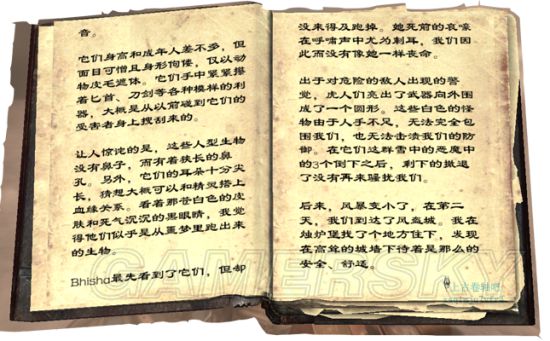 音。
它们身高和成年人差不多，但
面目可憎且身形佝偻，仅以动
物皮毛遮体。它们手中紧紧攥
着匕首、刀剑等各种模样的利
器，大概是从以前碰到它们的
受害者身上搜刮来的。
让人惊诧的是，这些人型生物
没有鼻子，而有着狭长的鼻
孔。另外，它们的耳朵十分尖
长，猜想大概可以和精灵搭上
血缘关系。看着那苍白色的皮
肤和死气沉沉的黑眼睛，我觉
得他们似乎是从噩梦里跑出来
的生物。
Bhisha最先看到了它们，但却
没来得及跑掉。她死前的哀嚎
在呼啸声中尤为刺耳，我们因
此而没有像她一样丧命。
出于对危险的敌人出现的警
觉，虎人们亮出了武器向外围
成了一个圆形。这些白色的怪
物由于人手不足，无法完全包
围我们，也无法击溃我们的防
御。在它们这群雪中的恶魔中
的3个倒下之后，剩下的撤退
了没有再来骚扰我们。
后来，风暴变小了，在第二
天，我们到达了风盔城。我在
烛炉堡找了个地方住下，发现
在高耸的城墙下待着是那么的
安全、舒适。
GAMERSKY
上古卷轴吧